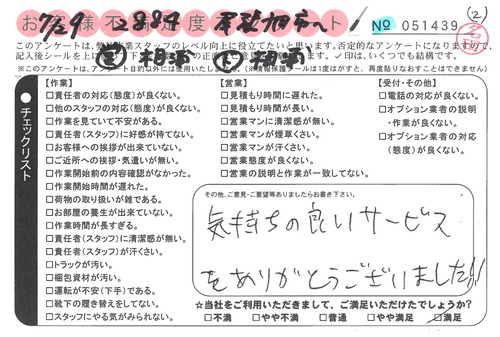 お客様不満足度アンケート
7/29
尾張旭市へ
№ 051439
②
このアンケートは、弊社作業スタッフのレベル向上に役立てたいと思います。否定的なアンケートになりますので、
記入後シールを上に
✓印は、いくつでも結構です。
※このアンケートは、アンケート目的以外には使用いたしません。(※情報保護シールは1度はがすと、再度貼りなおすことはできません)
チェックリスト
【作業】
□責任者の対応(態度)が良くない。
□他のスタッフの対応(態度)が良くない。
□作業を見ていて不安がある。
□責任者(スタッフ)に好感が持てない。
□お客様への挨拶が出来ていない。
□ご近所への挨拶・気遣いが無い。
□作業開始前の内容確認がなかった。
□作業開始時間が遅れた。
□荷物の取り扱いが雑である。
□お部屋の養生が出来ていない。
□作業時間が長すぎる。
□責任者(スタッフ)に清潔感が無い。
□責任者(スタッフ)が汗くさい。
□トラックが汚い。
□梱包資材が汚い。
□運転が不安(下手)である。
□靴下の履き替えをしてない。
□スタッフにやる気がみられない。
【営業】
□見積もり時間に遅れた。
□見積もり時間が長い。
□営業マンに清潔感が無い。
□営業マンが煙草くさい。
□営業マンが汗くさい。
□営業態度が良くない。
□営業の説明と作業が一致してない。
【受付・その他】
□電話の対応が良くない。
□オプション業者の説明・作業が良くない。
□オプション業者の対応(態度)が良くない。
その他、ご意見・ご要望等ありましたらお書き下さい。
気持ちの良いサービス
をありがとうございました!!
☆当社をご利用いただきまして、ご満足いただけたでしょうか?
□不満 □やや不満 □普通 □やや満足 ☑満足